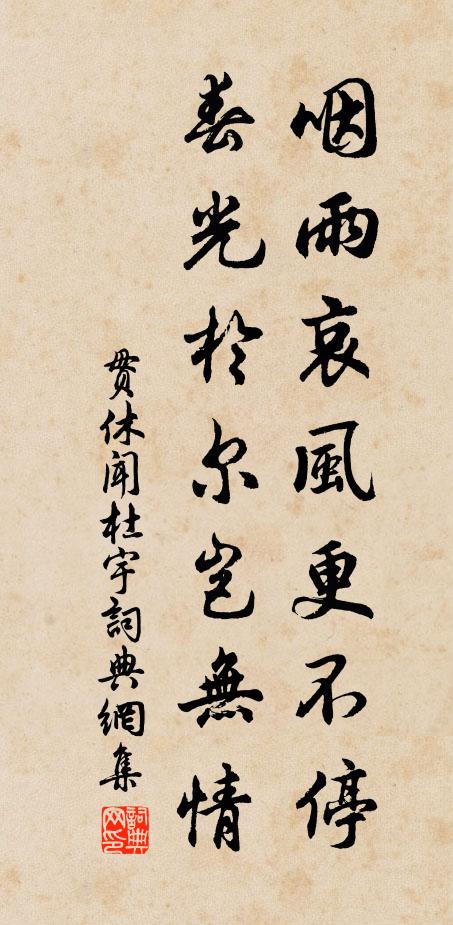 咽雨哀風更不停
春光於尔豈無情
貫休聞杜宇詞典網集
詞典网印